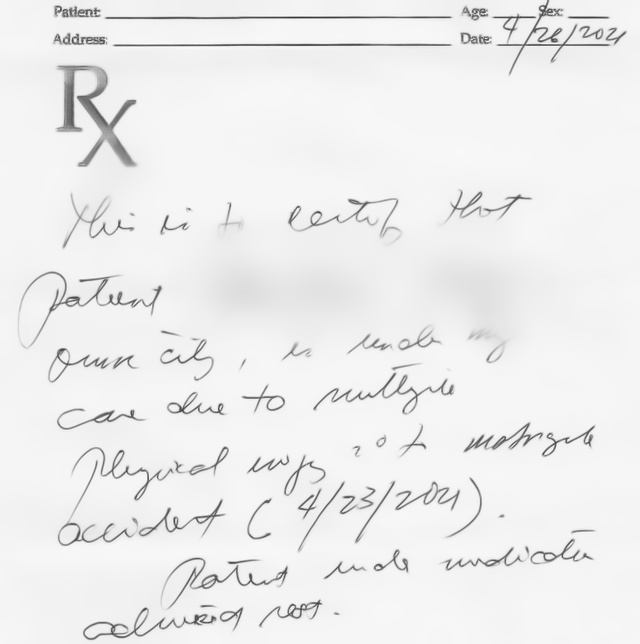 Patient: Age: Sex:
Address: Date: 4/26/2021
Rx
This is to certify that
patient
Ormoc city, is under my
care due to multiple
physical injury 2° to motorcycle
accident (4/23/2021).
Patient under medication
advised rest.